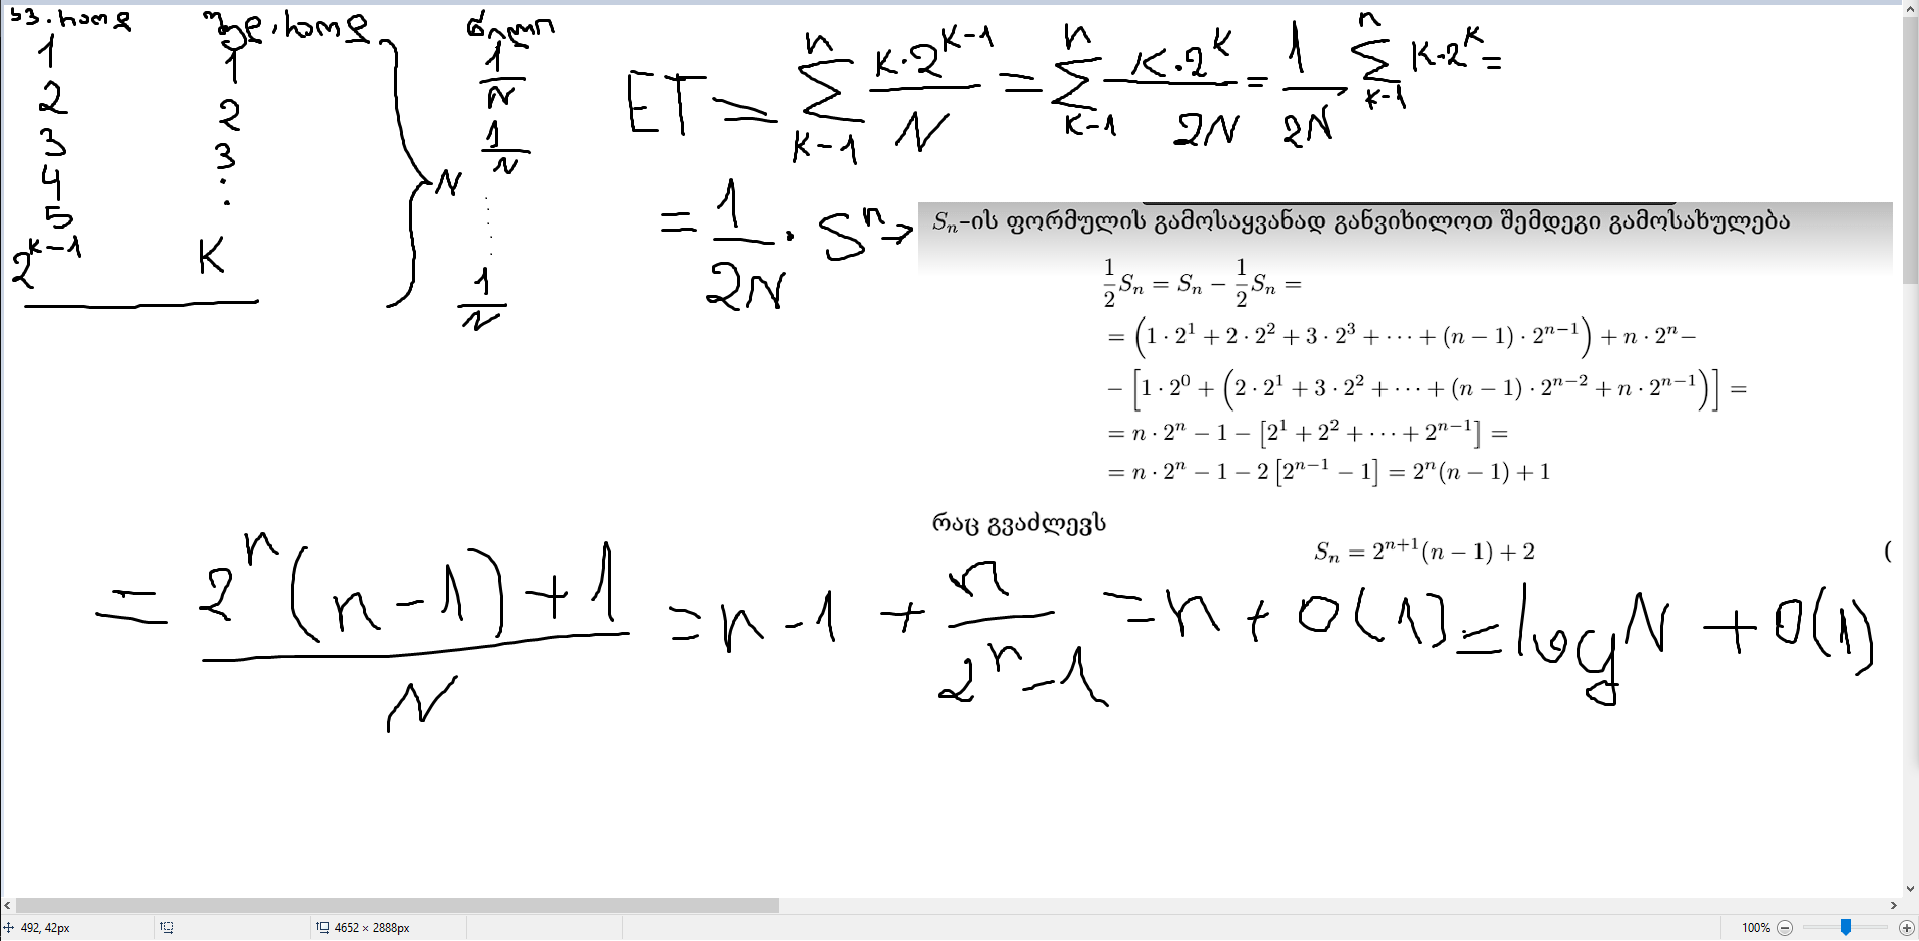 შედ.ხალდ
წილი
1 1 1/N
2 2
3 3 1/N
4 .
5 .
2^{k-1} K N 1/N
ET = \sum_{k-1}^{n} \frac{k \cdot 2^{k-1}}{N} = \sum_{k-1}^{n} \frac{k \cdot 2^k}{2N} = \frac{1}{2N} \sum_{k-1}^{n} k \cdot 2^k =
= \frac{1}{2N} \cdot S^n →
S_n-ის ფორმულის გამოსაყვანად განვიხილოთ შემდეგი გამოსახულება
\frac{1}{2}S_n = S_n − \frac{1}{2}S_n =
= (1 · 2^1 + 2 · 2^2 + 3 · 2^3 + ··· + (n − 1) · 2^{n−1}) + n · 2^n −
− [1 · 2^0 + (2 · 2^1 + 3 · 2^2 + ··· + (n − 1) · 2^{n−2} + n · 2^{n−1})] =
= n · 2^n − 1 − [2^1 + 2^2 + ··· + 2^{n−1}] =
= n · 2^n − 1 − 2 [2^{n−1} − 1] = 2^n(n − 1) + 1
რაც გვაძლევს
S_n = 2^{n+1}(n − 1) + 2 (
= \frac{2^n(n-1)+1}{N} = n-1 + \frac{n}{2^n-1} = n + O(1) = log N + O(1)
492, 42px 4652 × 2888px 100%